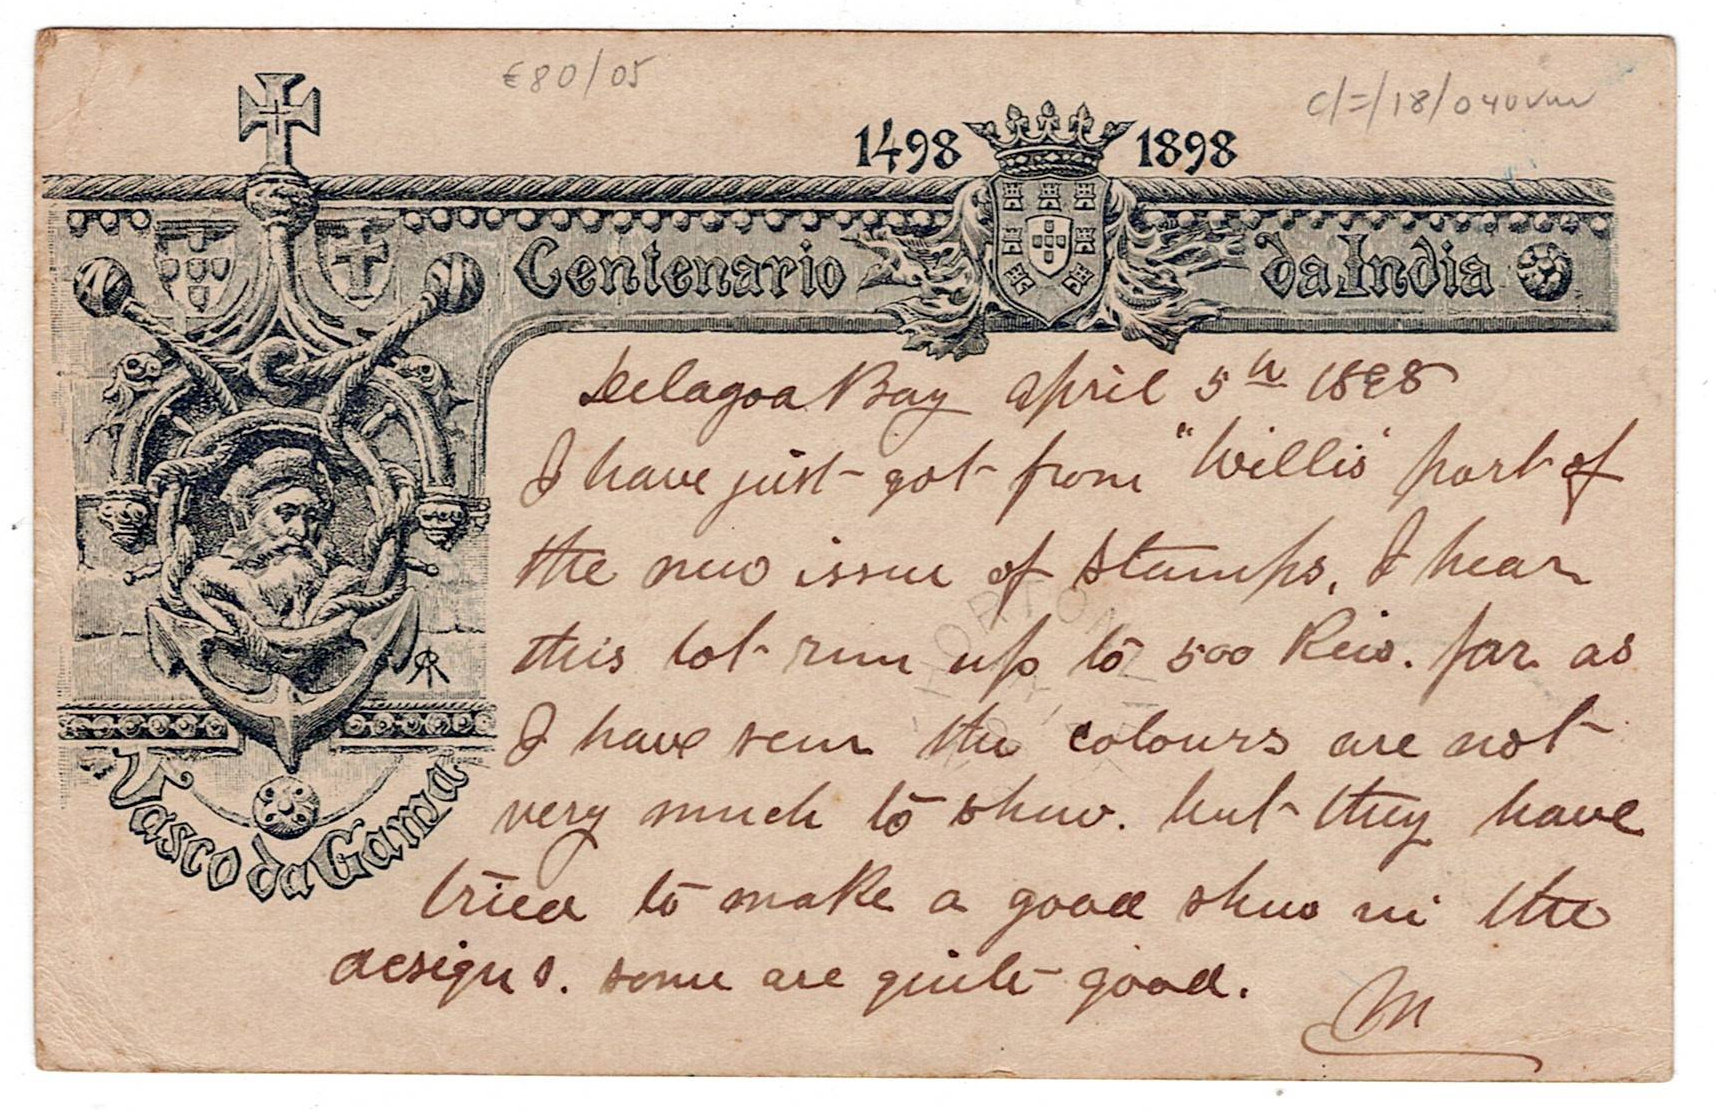 €80/05
c/=/18/040
1498 1898
Centenario da India
Delagoa Bay April 5th 1898
I have just got from "Willis" part of
the new issue of stamps, I hear
this lot run up to 500 Reis. far as
I have seen the colours are not
very much to show. but they have
tried to make a good show in the
designs. some are quite good.
M
Vasco da Gama